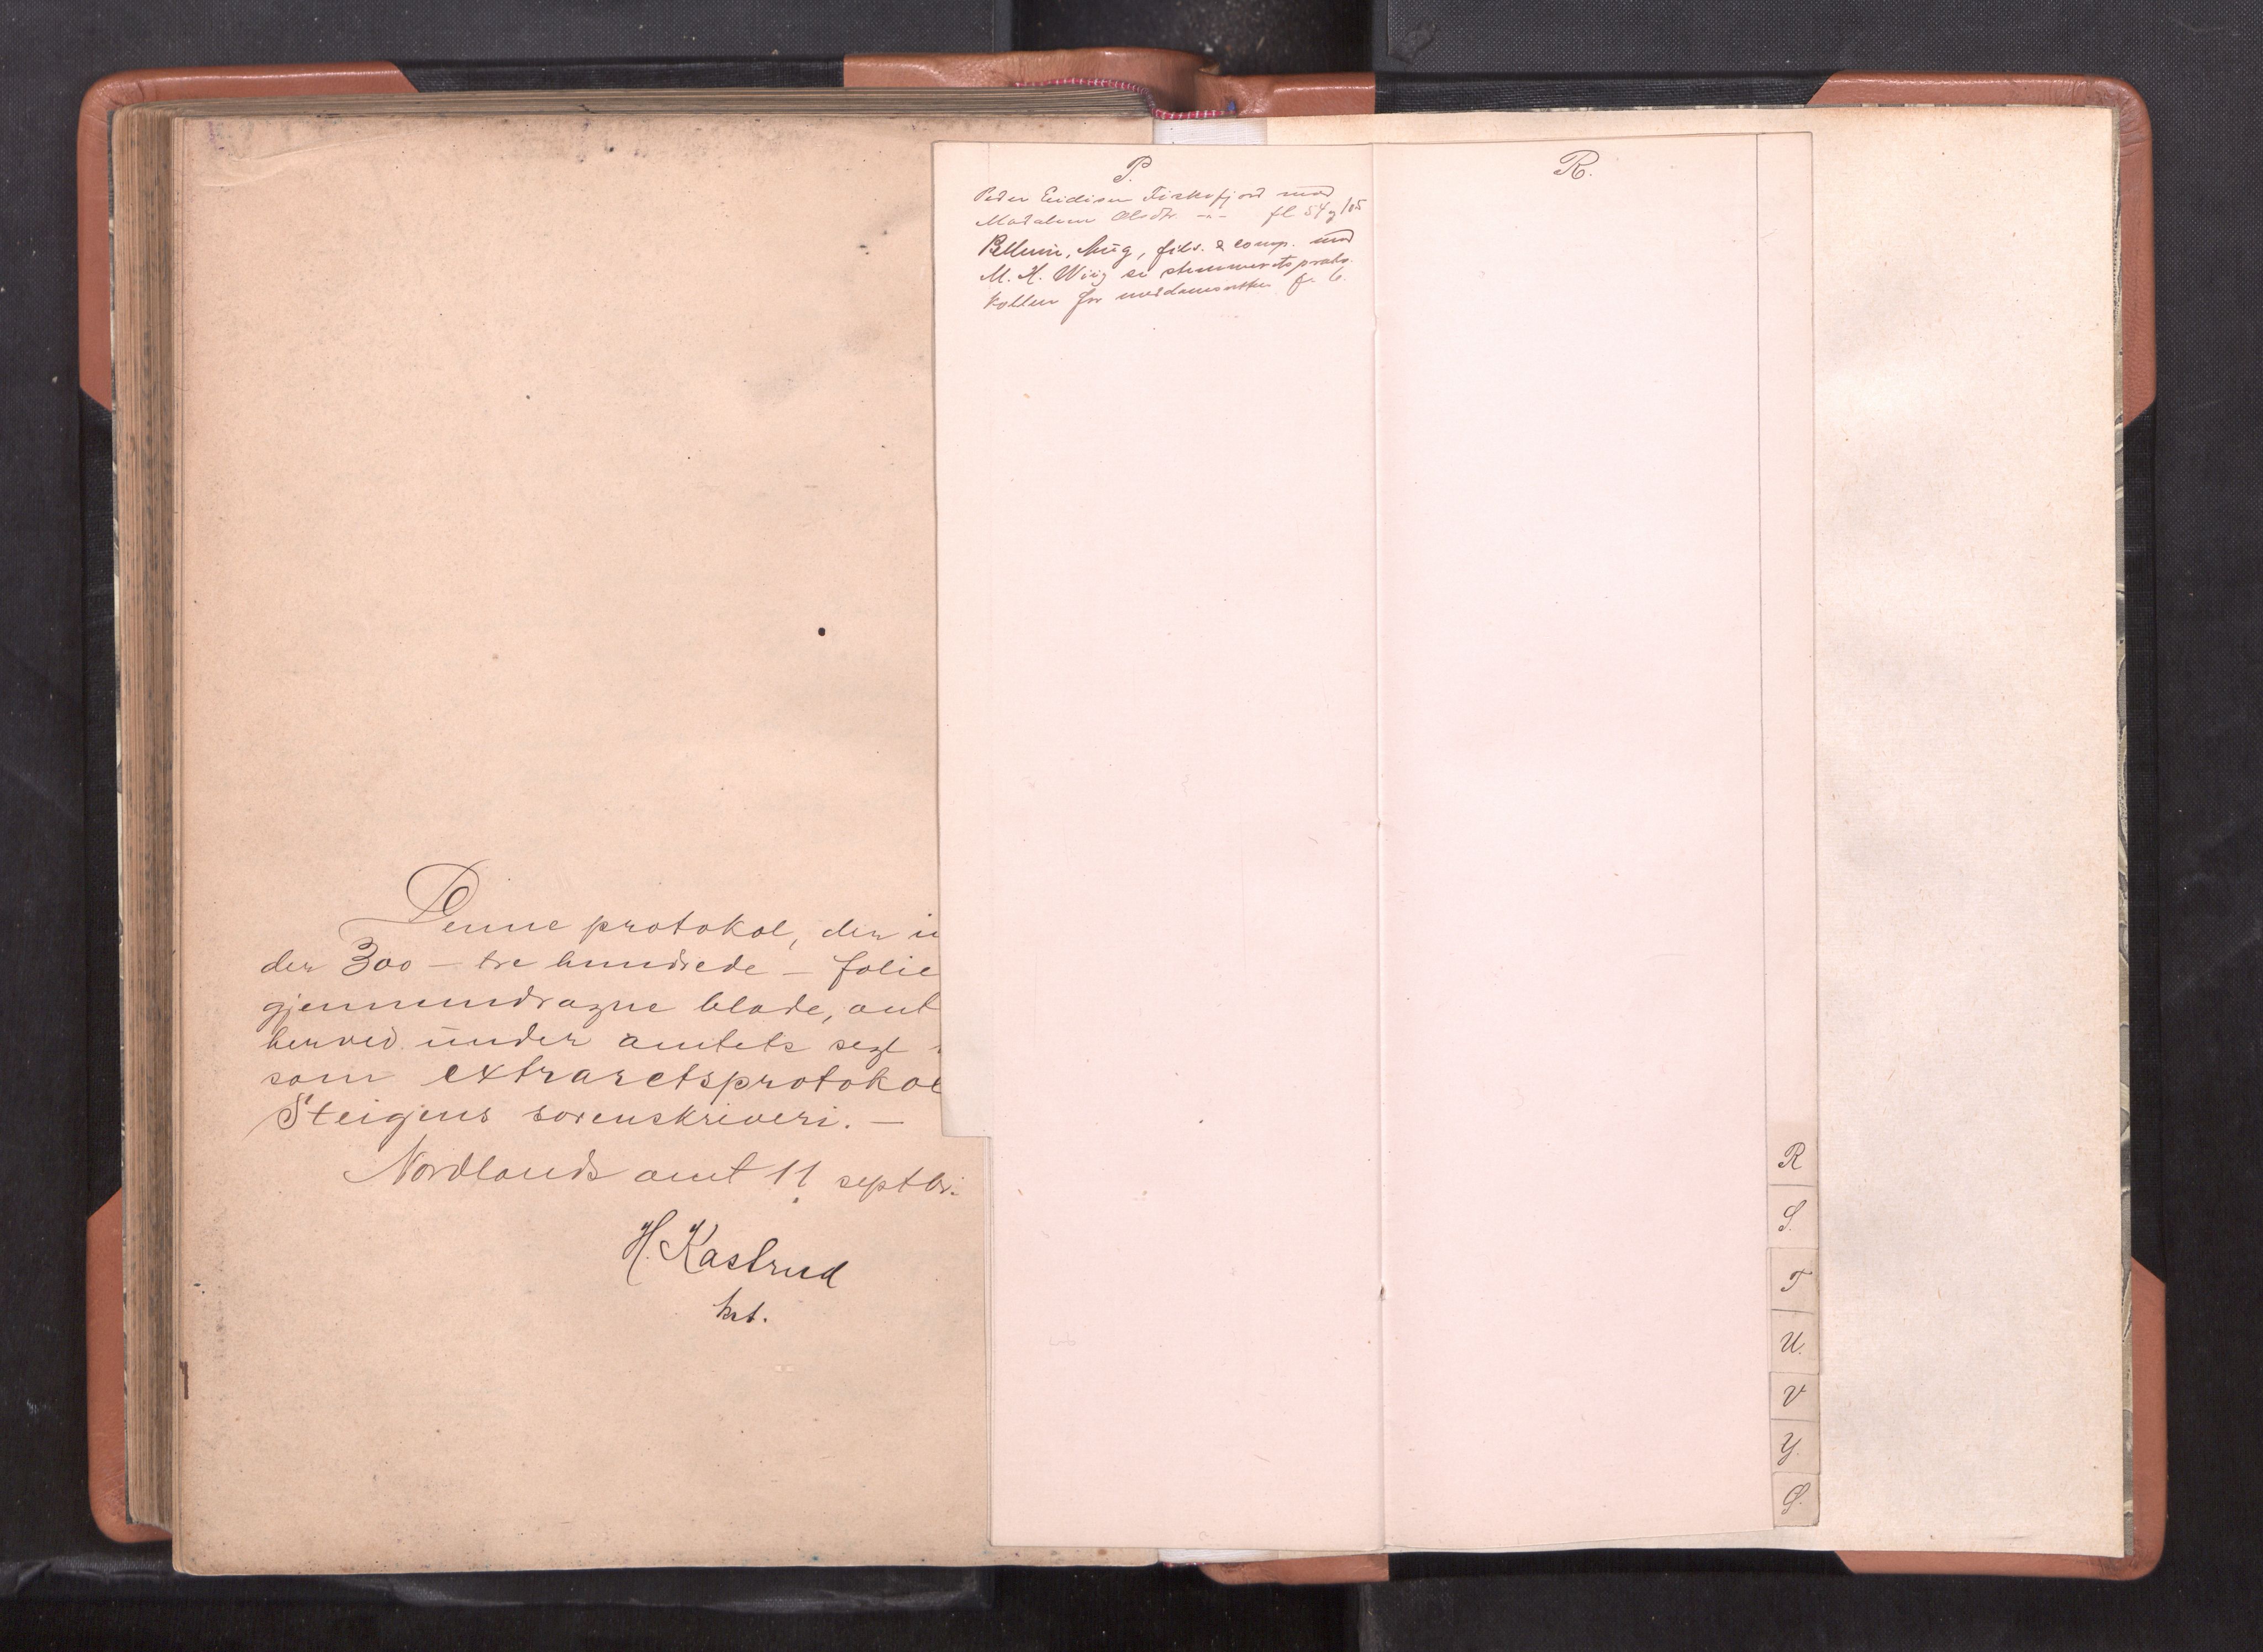 Denne protokol, der i
der 300 – tre hundrede – folie
gjennemdragne blade, aut
herved under amtets segl
som extraretsprotokol
Steigens sorenskriveri. –
Nordlands amt 11 septbr.
H. Kastrud
kst.
P.
Peder Eidisen Fiskefjord mod
Madalena Olsdtr. -"- fl 54 og 105
Pellerin, Aug, fils. & comp. mod
M. H. Wiig se stemmeretsproto-
kollen for meddomsretten fl. 6.
R.
R
S.
T
U.
V
Y.